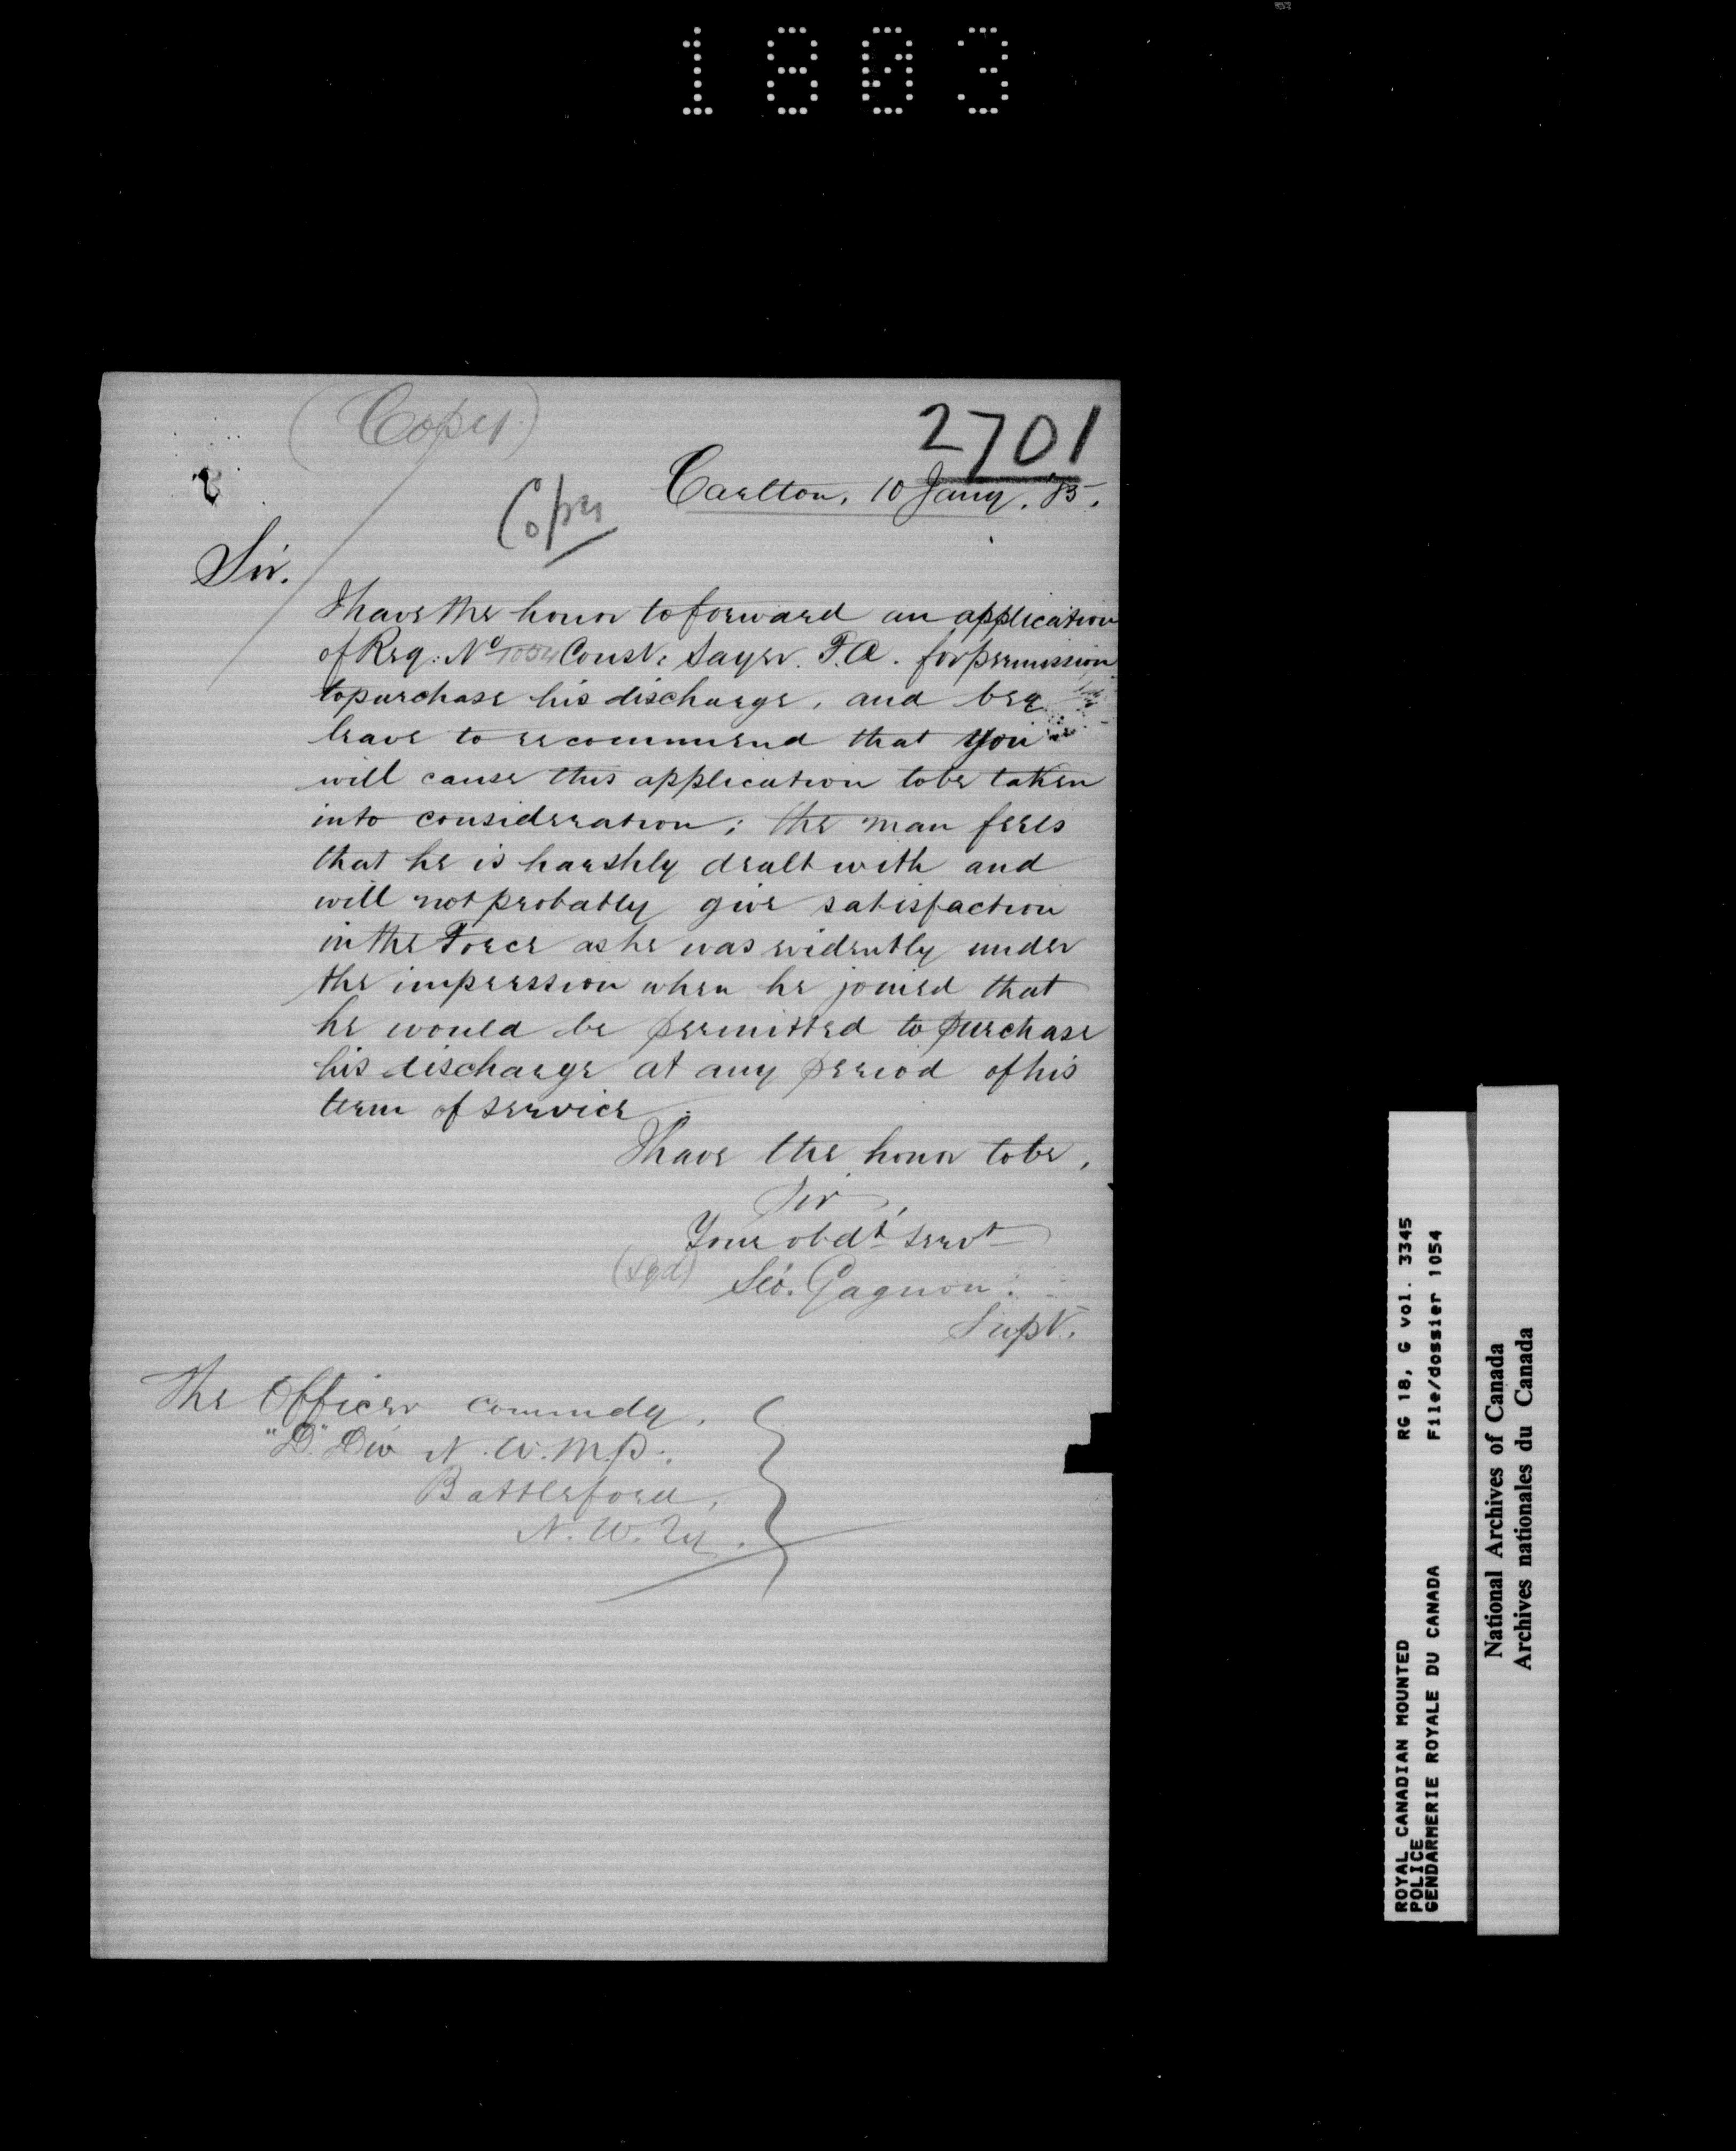 1803
(Copy.)
2701
Copy
Carlton, 10 Jany. '85.
Sir.
I have the honor to forward an application
of Reg: No 1054 Const: Sayer. F.A. for permission
to purchase his discharge, and beg
leave to recommend that you
will cause this application to be taken
into consideration; the man feels
that he is harshly dealt with and
will not probably give satisfaction
in the Force as he was evidently under
the impression when he joined that
he would be permitted to purchase
his discharge at any period of his
term of service.
I have the honor to be,
Sir,
Your obdt servt
(Sgd) Séo. Gagnon.
Supt.
The Officer commdg.
"D" Div N.W.M.P.
Battleford,
N.W.Ty.
ROYAL CANADIAN MOUNTED
POLICE
GENDARMERIE ROYALE DU CANADA
RG 18, G vol. 3345
File/dossier 1054
National Archives of Canada
Archives nationales du Canada